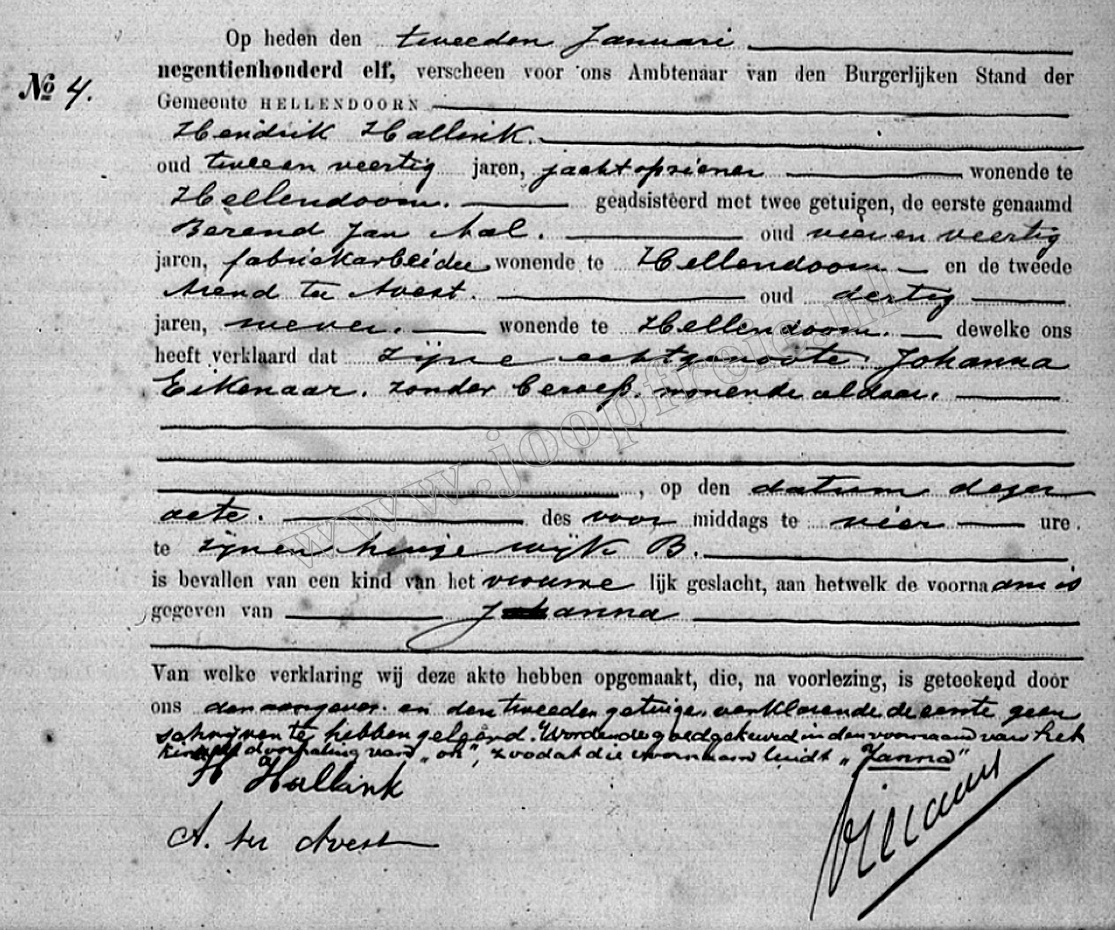 Op heden den tweeden Januari
negentienhonderd elf, verscheen voor ons Ambtenaar van den Burgerlijken Stand der
No 4.
Gemeente HELLENDOORN
Hendrik Hallink.
oud twee en veertig jaren, jachtopziener wonende te
Hellendoorn. geadsisteerd met twee getuigen, de eerste genaamd
Berend Jan Mol. oud vier en veertig
jaren, fabriekarbeider wonende te Hellendoorn en de tweede
Arend ter Avest. oud dertig
jaren, wever. wonende te Hellendoorn. dewelke ons
heeft verklaard dat zijne echtgenoote, Johanna
Eikenaar, zonder beroep, wonende aldaar,
, op den datum dezer
acte. des voor middags te vier ure.
te zijnen huize wijk B.
is bevallen van een kind van het vrouwe lijk geslacht, aan hetwelk de voorna am is
gegeven van Johanna
Van welke verklaring wij deze akte hebben opgemaakt, die, na voorlezing, is geteekend door
ons den aangever en den tweeden getuige, verklarende de eerste geen
schrijven te hebben geleerd. Wordende goedgekeurd in den voornaam van het
kind de doorhaling van "oh", zoodat die voornaam luidt "Janna"
H Hallink
A. ter Avest
www.joopfreie.nl